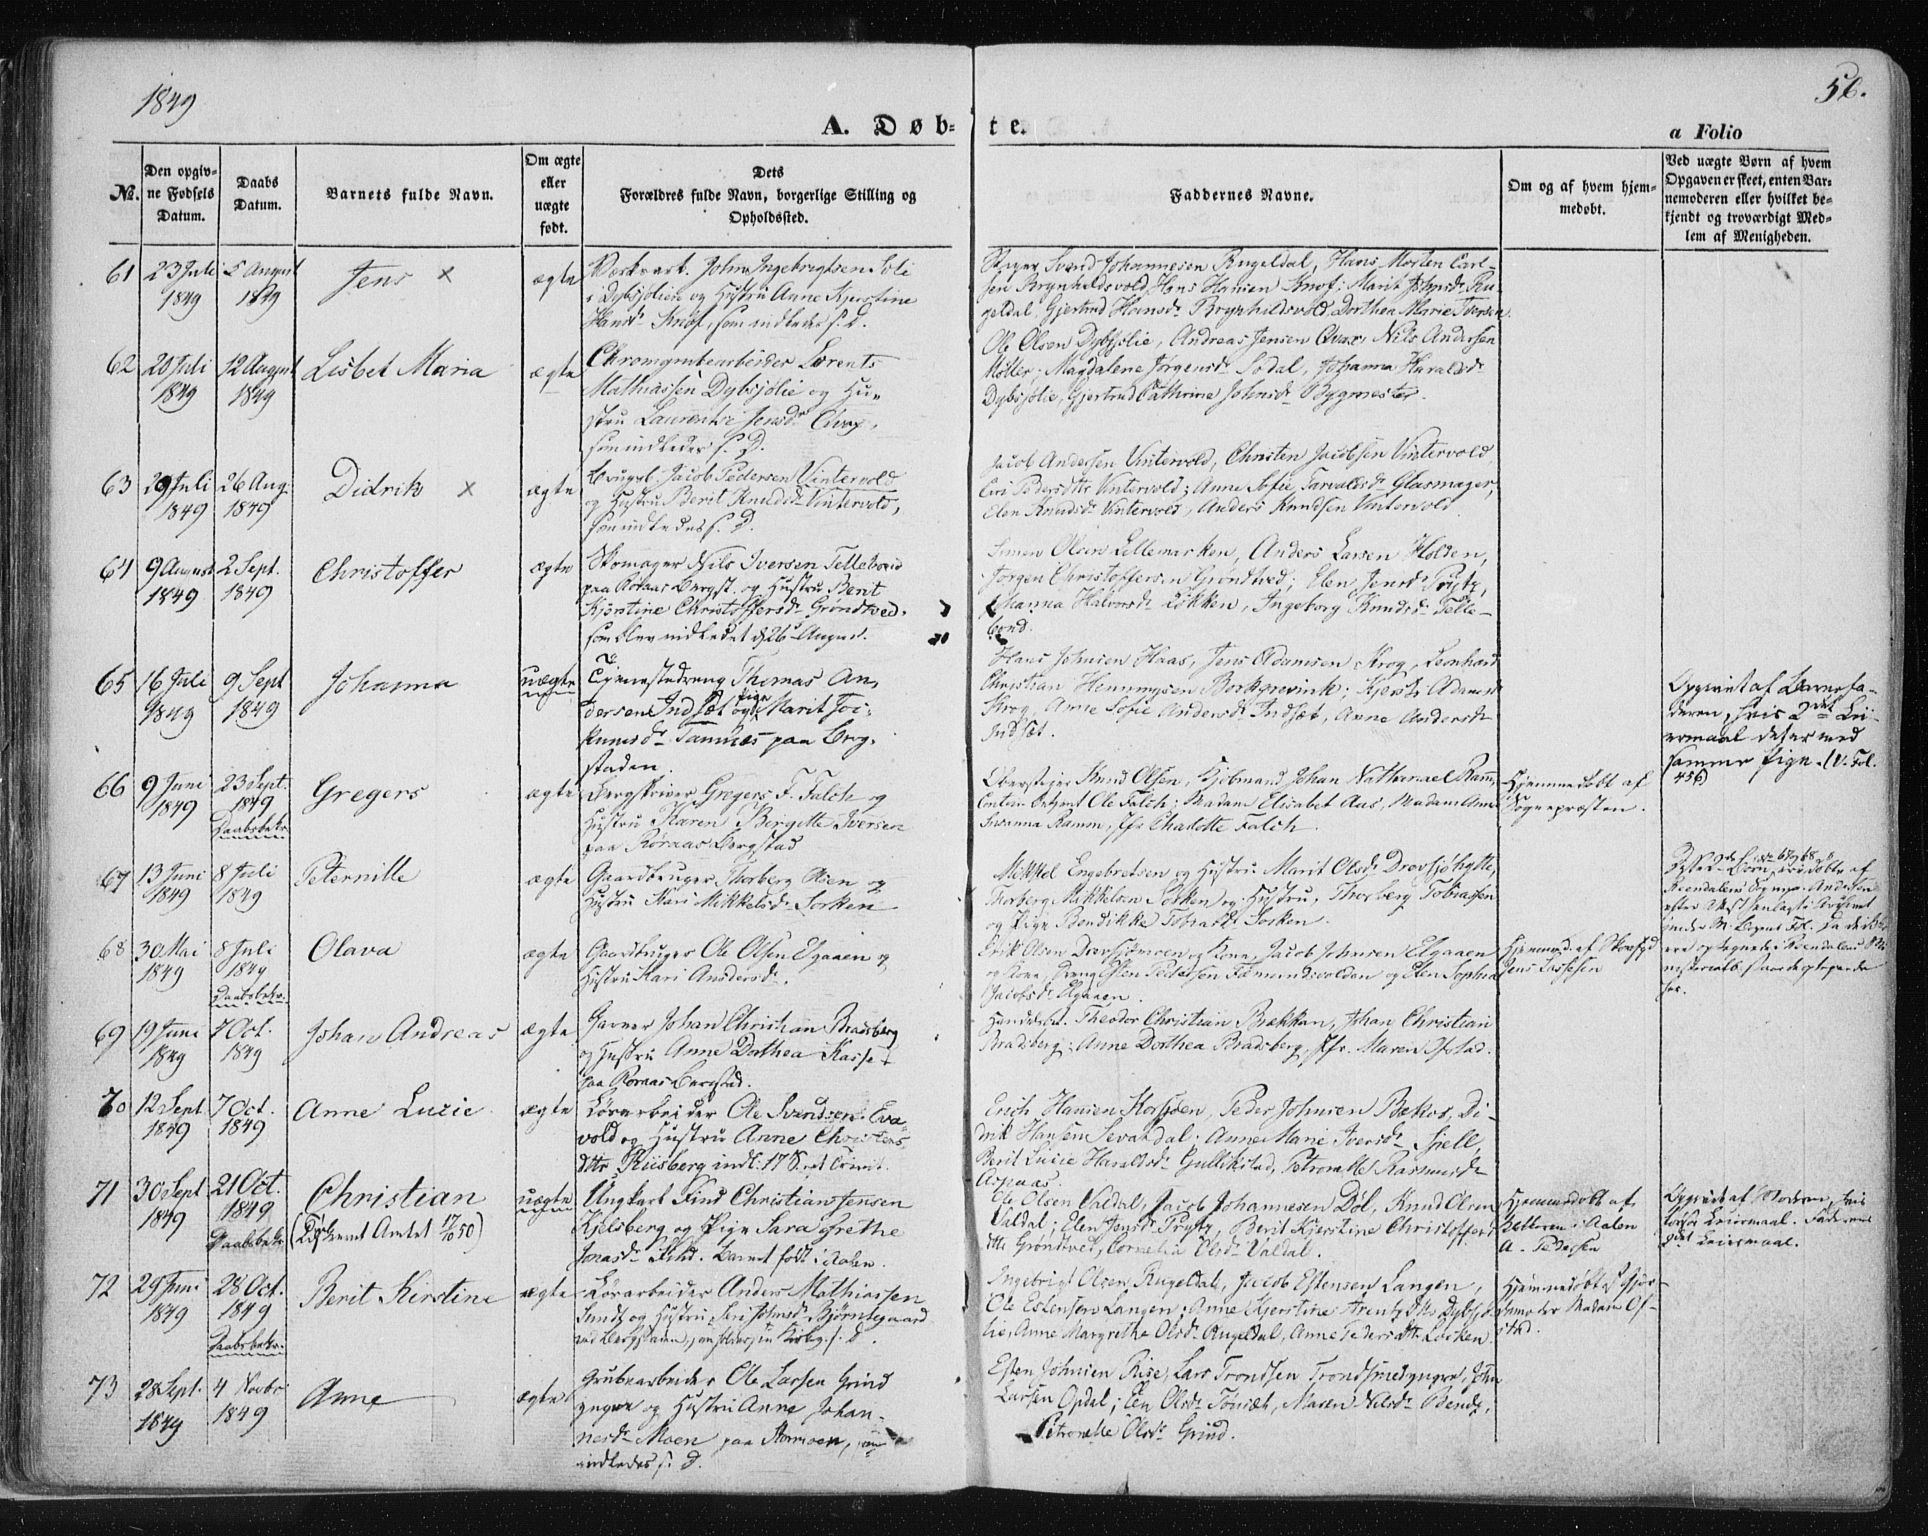 1849
56.
A. Døb-
te.
a Folio
No.
Den opgiv-
ne Fødsels
Datum.
Daabs
Datum.
Barnets fulde Navn.
Om ægte
eller
uægte
født.
Dets
Forældres fulde Navn, borgerlige Stilling og
Opholdssted.
Faddernes Navne.
Om og af hvem hjem-
medøbt.
Ved uægte Børn af hvem
Opgaven er skeet, enten Bar-
nemoderen eller hvilket be-
kjendt og troværdigt Med-
lem af Menigheden.
61
23 Juli
1849
5 August
1849
Jens x
ægte
John Ingebrigtsen
i Dybsjølien og Hustru Anne Kjerstine
Hansdr Knof, som indledes s. D.
Svend Johannesen Rugeldal, Hans Morten Carl-
sen Brynhildsvold, Hans Hansen Knof; Marit Johnsdr Ru-
geldal, Gjertrud Hansdr Brynhildsvold, Dorthea Marie Iversen
62
20 Juli
1849
12 August
1849
Lisbet Maria
ægte
Chromgrubearbeider Lorents
Mathiassen Dybsjølie og Hu-
stru Laurentse Jensdr Qvax,
som indledes s. D.
Ole Olsen Dybsjølie, Andreas Jensen Qvax, Nils Andersen
Møller; Magdalene Jørgensdr Sødal, Johanna Haraldsdr
Dybsjølie, Gjertrud Cathrine Johnsdr Bygmester.
63
29 Juli
1849
26 Aug.
1849
Didrik x
ægte
Brugsb. Jacob Pedersen Vintervold
og Hustru Berit Knudsdr Vintervold,
som indledes s. D.
Jacob Andersen Vintervold, Christen Jacobsen Vintervold,
Eri Pedersdtr Vintervold; Anne Sofie Tarvaldsdr Glasmager,
Elen Knudsdr Vintervold, Anders Knudsen Vintervold.
64
9 August
1849
2 Sept.
1849
Christoffer
ægte
Skomager Nils Iversen Tellebond
paa Røraas Bergst. og Hustru Berit
Kjerstine Christoffersdr Grøndtved.
som blev indledet d 26 August.
Simen Olsen Lillemarken, Anders Larsen Holden,
Jørgen Christoffersen Grøndtved; Elen Jensdr Prytz,
Johanna Halvorsdr Løkken, Ingeborg Knudsdr Telle-
bond.
65
16 Juli
1849
9 Sept
1849
Johanna
uægte
Tjenestedreng Thomas An-
dersen Indsæt og Pige Marit Joc-
humsdr Tamnæs paa Berg-
staden.
Hans Johnsen Haas, Jens Adamsen Krog, Leonhard
Christian Hemmingsen Borkgrevink; Kjersti Adamsdr
Krog, Anne Sofie Andersdr Indsæt, Anne Andersdr
Indsæt.
Opgivet af Barnefa-
deren, hvis 2det Lei-
ermaal det er med
samme Pige. (V. Fol.
456)
66
9 Juni
1849
23 Sept.
1849
Daabsbekr.
Gregers
ægte
Bergskriver Gregers F. Falch og
Hustru Karen Bergette Iversen
paa Røraas Bergstad
Oberstiger Knud Olsen, Kjøbmand Johan Nathanael Ramm,
Ole Falch; Madam Elisabet Aas, Madam Anne
Susanna Ramm, Jfr Charlotte Falch.
Hjemmedøbt af
Sognepræsten.
67
13 Juni
1849
8 Juli
1849
Peternille
ægte
Gaardbruger Thorberg Olsen og
Hustru Kari Mikkelsdr Sorken
Mikkel Engebretsen og Hustru Marit Olsdr Drevsjøhytte,
Thorberg Mikkelsen Sorken og Hustru, Thorberg Tobiassen
og Pige Bendikke Tobiasdr Sorken.
68
30 Mai
1849
8 Juli
1849
Daabsbekr.
Olava
ægte
Gaardbruger Ole Olsen Elgaaen og
Hustru Kari Andersdr.
Erik Olsen Drevsjømoen og Kone, Jacob Johnsen Elgaaen
og Kone, Dreng Esten Pedersen Femundsvolden og Elen Sophie
Jacobsdr Elgaaen.
Hjemmed. af Skovfgd
Jens Lassesen
69
19 Juni
1849
7 Oct.
1849
Johan Andreas
ægte
Garver Johan Christian Bradsberg
og Hustru Anne Dorthea Kasse
paa Roraas Bergstad.
Theodor Christian Bækken, Johan Christian
Bradsberg; Anne Dorthea Bradsberg, Jfr. Maren Ofstad.
70
12 Sept
1849
7 Oct.
1849
Anne Lucie
ægte
Lørarbeider Ole Svendsen Eva-
vold og Hustru Anne Christens-
dttr Riisberg indl: 17 S. ect Trinit.
Erich Hansen Korssen, Peder Johnsen Bækos, Di-
drik Hansen Sevatdal; Anne Marie Iversdr Sjell,
Berit Lucie Haraldsdr Gullikstad, Petronelle Rasmusdr
Aspaas.
71
30 Sept
1849
21 Oct.
1849
Daabsbekr.
Christian
uægte
Ungkarl Find Christian Jensen
Kjelsberg og Pige Sara Grethe
Jonasdr Find. Barnet født i Aalen.
Ole Olsen Valdal, Jacob Johannesen Døl, Knud Olsen
Valdal; Elen Jensdr Prytz, Berit Kjerstine Christoffers-
dttr Grøndtved, Cornelia Olsdr Valdal.
Hjemmedøbt af
Klokkeren i Aalen
A. Pedersen
Opgivet af Moderen, hvis
første Leiermaal. Faderens
72
29 Juni
1849
28 Oct.
1849
Daabsbekr.
Berit Kirstine
ægte
Lørarbeider Anders Mathiassen
Sund og Hustru Siri Johnsdr Bjørnegaard
Ingebrigt Olsen Rugeldal, Jacob Estensen Langen,
Ole Estensen Langen; Anne Kjerstine Arentzdtr Dybsjø-
lie, Anne Margrethe Olsdr Rugeldal, Anne Pedersdtr Løcken
Hjemmedøbt af Gjor-
demoder Madam Of-
sted.
73
28 Sept.
1849
4 Novbr
1849
Anne
ægte
Grubearbeider Ole Larsen Grind
yngre og Hustru Anne Johan-
nesdr Moen paa Stormoen, som
indledes s. D.
Esten Johnsen Riise, Lars Trondsen Trondsmed yngre, John
Larsen Opdal; Eli Olsdr Tønsæt, Maren Nilsdr Bendz,
Petronelle Olsdr Grind.